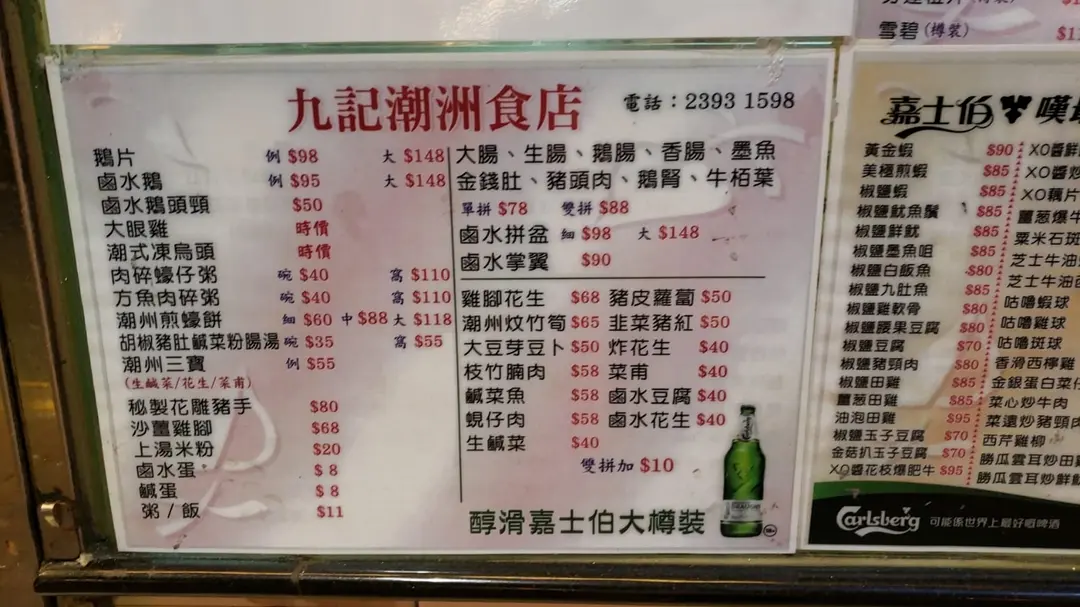 雪碧(樽裝)
九記潮洲食店
電話：2393 1598
鵝片 例 $98 大 $148
鹵水鵝 例 $95 大 $148
鹵水鵝頭頸 $50
大眼雞 時價
潮式凍烏頭 時價
肉碎蠔仔粥 碗 $40 窩 $110
方魚肉碎粥 碗 $40 窩 $110
潮州煎蠔餅 細 $60 中 $88 大 $118
胡椒豬肚鹹菜粉腸湯 碗 $35 窩 $55
潮州三寶 例 $55
(生鹹菜/花生/菜甫)
秘製花雕豬手 $80
沙薑雞腳 $68
上湯米粉 $20
鹵水蛋 $8
鹹蛋 $8
粥/飯 $11
大腸、生腸、鵝腸、香腸、墨魚
金錢肚、豬頭肉、鵝腎、牛栢葉
單拼 $78 雙拼 $88
鹵水拼盆 細 $98 大 $148
鹵水掌翼 $90
雞腳花生 $68 豬皮蘿蔔 $50
潮州炆竹筍 $65 韭菜豬紅 $50
大豆芽豆卜 $50 炸花生 $40
枝竹腩肉 $58 菜甫 $40
鹹菜魚 $58 鹵水豆腐 $40
蜆仔肉 $58 鹵水花生 $40
生鹹菜 $40
雙拼加 $10
醇滑嘉士伯大樽裝
嘉士伯 嘆
黃金蝦 $90
美極煎蝦 $85
椒鹽蝦 $85
椒鹽魷魚鬚 $85
椒鹽鮮魷 $85
椒鹽墨魚咀 $85
椒鹽白飯魚 $80
椒鹽九肚魚 $85
椒鹽雞軟骨 $80
椒鹽腰果豆腐 $80
椒鹽豆腐 $70
椒鹽豬頸肉 $80
椒鹽田雞 $85
薑蔥田雞 $85
油泡田雞 $95
椒鹽玉子豆腐 $70
金菇扒玉子豆腐 $70
XO醬花枝爆肥牛 $95
XO醬鮮
XO醬炒
XO藕片
薑蔥爆牛
粟米石斑
芝士牛油
芝士牛油
咕嚕蝦球
咕嚕雞球
咕嚕斑球
香滑西檸雞
金銀蛋白菜
菜心炒牛肉
菜遠炒豬頸肉
西芹雞柳
勝瓜雲耳炒田雞
勝瓜雲耳炒鮮魷
Carlsberg 可能係世界上最好嘅啤酒